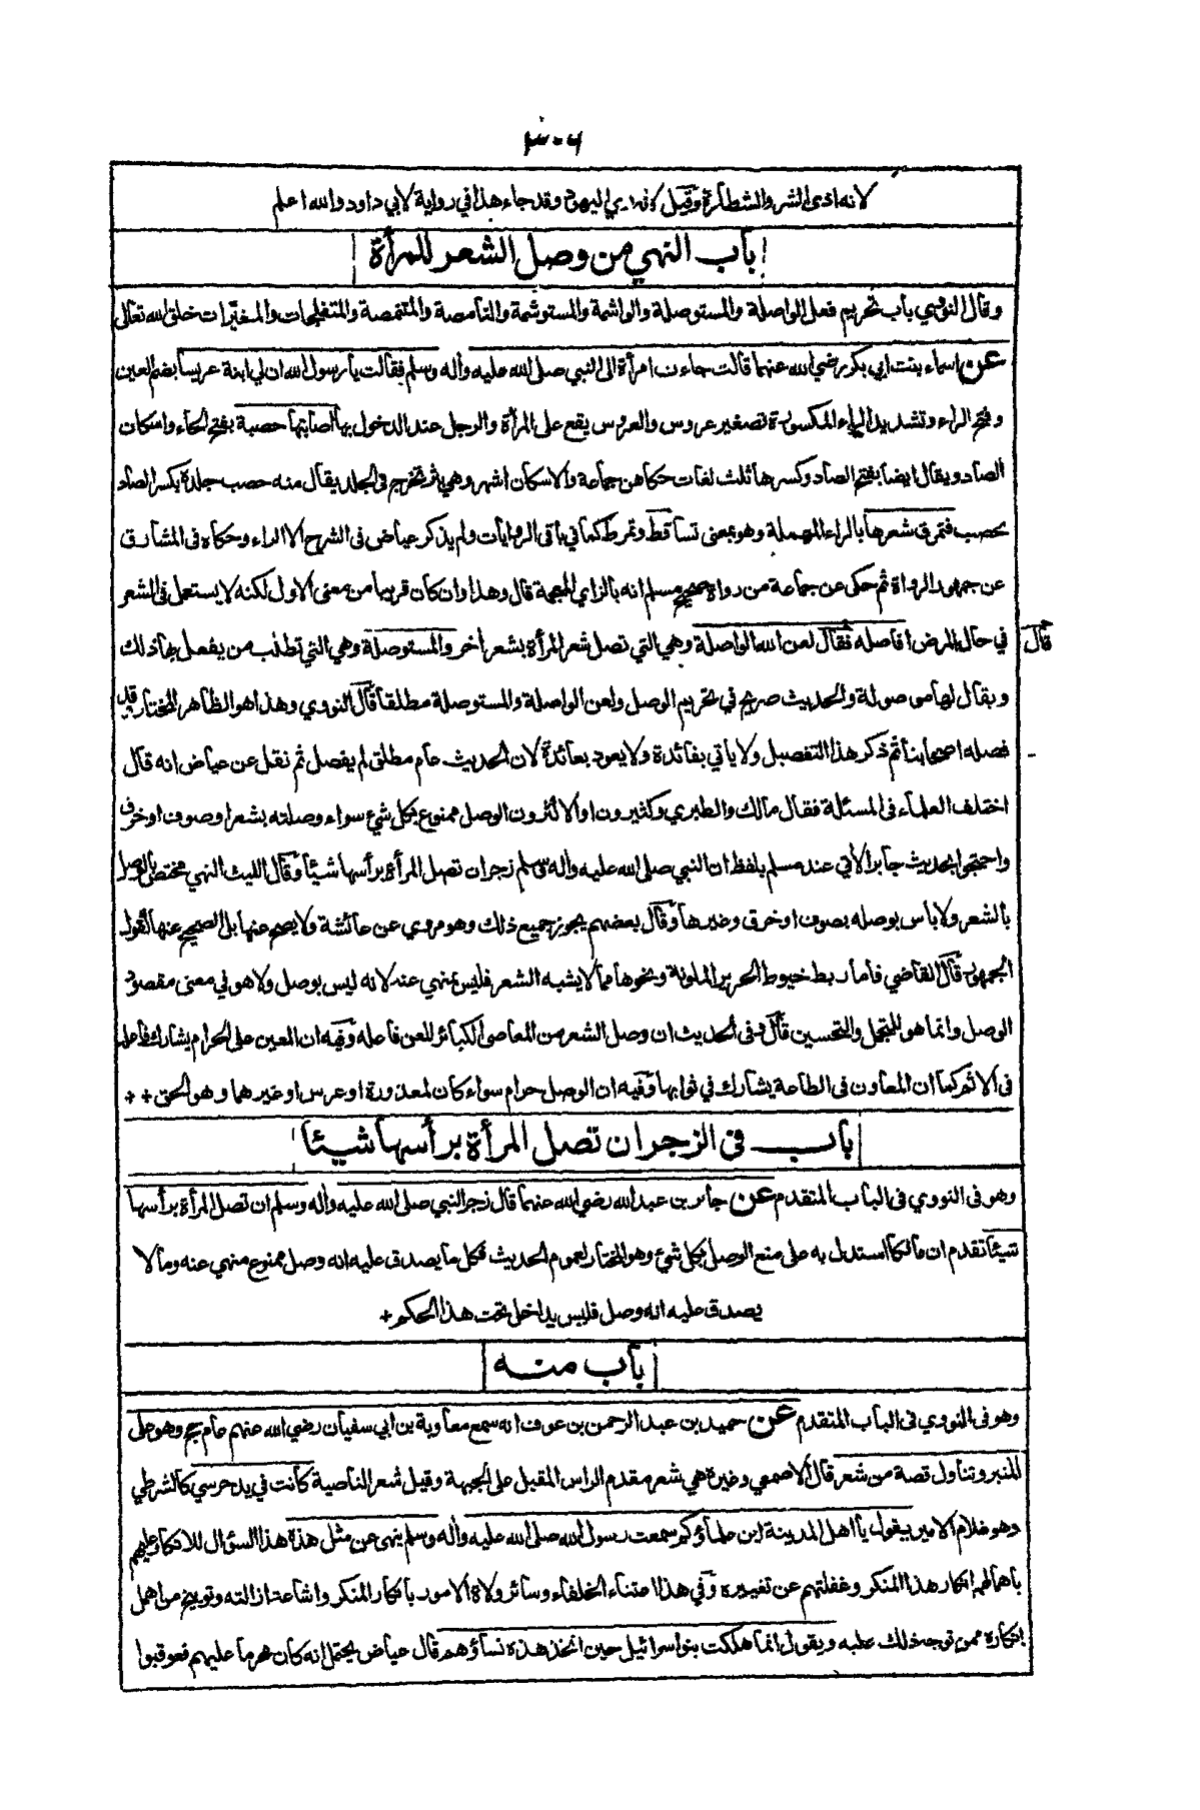 ٣٠٦
لانه اذى الشر والشطارة وقيل لانه زي اليهود وقد جاء هذا في رواية لابي داود والله اعلم
باب النهي من وصل الشعر للمرأة
وقال النووي باب تحريم فعل الواصلة والمستوصلة والواشمة والمستوشمة والنامصة والمتنمصة والمتفلجات والمغيّرات خلق الله تعالى
عن اسماء بنت ابي بكر رضي الله عنهما قالت جاءت امرأة الى النبي صلى الله عليه واله وسلم فقالت يا رسول الله ان لي ابنة عريسا بضم العين
وفتح الراء وتشديد الياء المكسورة تصغير عروس والعروس يقع على المرأة والرجل عند الدخول بها اصابتها حصبة بفتح الحاء واسكان
الصاد ويقال ايضا بفتح الصاد وكسرها ثلث لغات حكاهن جماعة والاسكان اشهر وهي بثر تخرج في الجلد يقال منه حصب جلده بكسر الصاد
يحصب فتمرق شعرها بالراء المهملة وهو بمعنى تساقط وتمرط كما في باقي الروايات ولم يذكر عياض في الشرح الا الراء وحكاه في المشارق
عن جمهور الرواة ثم حكى عن جماعة من رواة صحيح مسلم انه بالزاي المعجمة قال وهذا وان كان قريبا من معنى الاول لكنه لا يستعمل في الشعر
في حال المرض افاصله فقال لعن الله الواصلة وهي التي تصل شعر المرأة بشعر اخر والمستوصلة وهي التي تطلب من يفعل بها ذلك
قال
ويقال لها موصولة والحديث صريح في تحريم الوصل ولعن الواصلة والمستوصلة مطلقا قال النووي وهذا هو الظاهر المختار وقد
فصله اصحابنا ثم ذكر هذا التفصيل ولا ياتي بفائدة ولا يعود بعائدة لان الحديث عام مطلق لم يفصل ثم نقل عن عياض انه قال
اختلف العلماء في المسئلة فقال مالك والطبري وكثيرون او الاكثرون الوصل ممنوع بكل شيء سواء وصلته بشعر او صوف او خرق
واحتجوا بحديث جابر الاتي عند مسلم بلفظ ان النبي صلى الله عليه واله وسلم زجر ان تصل المرأة برأسها شيئا وقال الليث النهي مختص بالوصل
بالشعر ولا باس بوصله بصوف او خرق وغيرها وقال بعضهم يجوز جميع ذلك وهو مروي عن عائشة ولا يصح عنها بل الصحيح عنها كقول
الجمهور قال القاضي فاما ربط خيوط الحرير الملونة ونحوها مما لا يشبه الشعر فليس بمنهي عنه لانه ليس بوصل ولا هو في معنى مقصود
الوصل وانما هو للتجمل والتحسين قال وفى الحديث ان وصل الشعر من المعاصي الكبائر للعن فاعله وفيه ان المعين على الحرام يشارك فاعله
في الاثم كما ان المعاون في الطاعة يشارك في ثوابها وفيه ان الوصل حرام سواء كان لمعذورة او عرس او غيرهما وهو الحق + +
باب في الزجر ان تصل المرأة برأسها شيئا
وهو في النووي في الباب المتقدم عن جابر بن عبد الله رضي الله عنهما قال زجر النبي صلى الله عليه واله وسلم ان تصل المرأة برأسها
شيئا تقدم ان مالكا استدل به على منع الوصل بكل شيء وهو المختار لعموم الحديث فكل ما يصدق عليه انه وصل ممنوع منهي عنه وما لا
يصدق عليه انه وصل فليس بداخل تحت هذا الحكم +
باب منه
وهو في النووي في الباب المتقدم عن حميد بن عبد الرحمن بن عوف انه سمع معاوية بن ابي سفيان رضي الله عنهم عام حج وهو على
المنبر وتناول قصة من شعر قال الاصمعي وغيره هي شعر مقدم الراس المقبل على الجبهة وقيل شعر الناصية كانت في يد حرسي كالشرطي
وهو غلام الامير يقول يا اهل المدينة اين علماؤكم سمعت رسول الله صلى الله عليه واله وسلم ينهى عن مثل هذه هذا السؤال للانكار عليهم
باهمالهم انكار هذا المنكر وغفلتهم عن تغييره وفي هذا اعتناء الخلفاء وسائر ولاة الامور بانكار المنكر واشاعة ازالته وتوبيخ من اهمل
انكاره ممن توجه ذلك عليه ويقول انما هلكت بنو اسرائيل حين اتخذ هذه نساؤهم قال عياض يحتمل انه كان محرما عليهم فعوقبوا